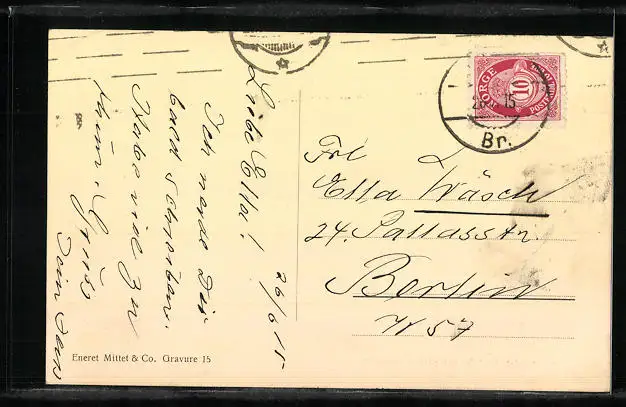 Liebe Ella!
Ich werde Dir
bald schreiben.
Habe viel zu
thun. Gruß
Dein
26/6 15
NORGE
10
POSTFRIM
15
Br.
Frl
Ella Wäsch
24. Pallasstr.
Berlin
W 57
Eneret Mittet & Co. Gravure 15